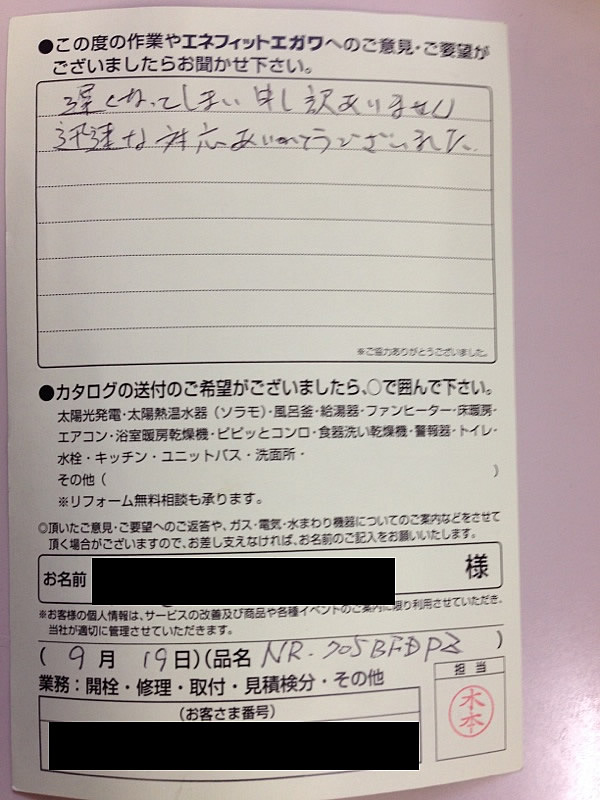 ●この度の作業やエネフィットエガワへのご意見・ご要望が
ございましたらお聞かせ下さい。
遅くなってしまい申し訳ありません
迅速な対応ありがとうございました。
※ご協力ありがとうございました。
●カタログの送付のご希望がございましたら、○で囲んで下さい。
太陽光発電・太陽熱温水器(ソラモ)・風呂釜・給湯器・ファンヒーター・床暖房・
エアコン・浴室暖房乾燥機・ピピッとコンロ・食器洗い乾燥機・警報器・トイレ・
水栓・キッチン・ユニットバス・洗面所・
その他( )
※リフォーム無料相談も承ります。
◎頂いたご意見・ご要望へのご返答や、ガス・電気・水まわり機器についてのご案内などをさせて
頂く場合がございますので、お差し支えなければ、お名前のご記入をお願いいたします。
お名前 様
※お客様の個人情報は、サービスの改善及び商品や各種イベントのご案内に限り利用させていただき、
当社が適切に管理させていただきます。
(9月19日)(品名 NR-705BFDPZ )
業務:開栓・修理・取付・見積検分・その他
担当
木本
(お客さま番号)